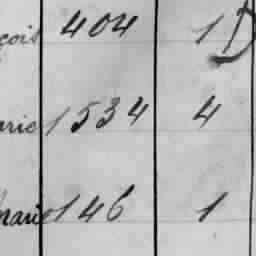 çois 404 1
arie 1534 4
marie 146 1